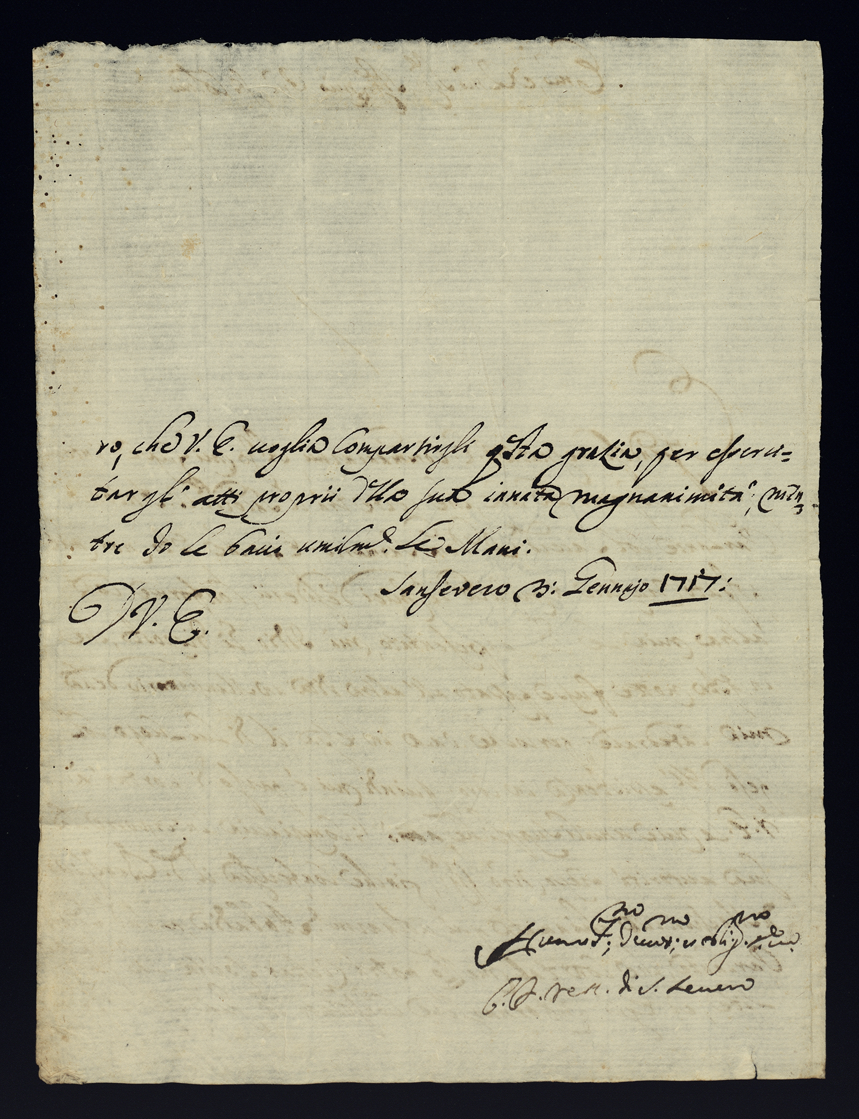 ro, che V. E. voglia compartirgli q.sta grazia, per eserci=
targli atti proprii d'lla sua innata magnanimità; men=
tre io le bacio umilm.e le Mani.
Sansevero 3: Gennajo 1717:
D V. E.
Devot:mo; obblig.
Vesc. di S. Severo